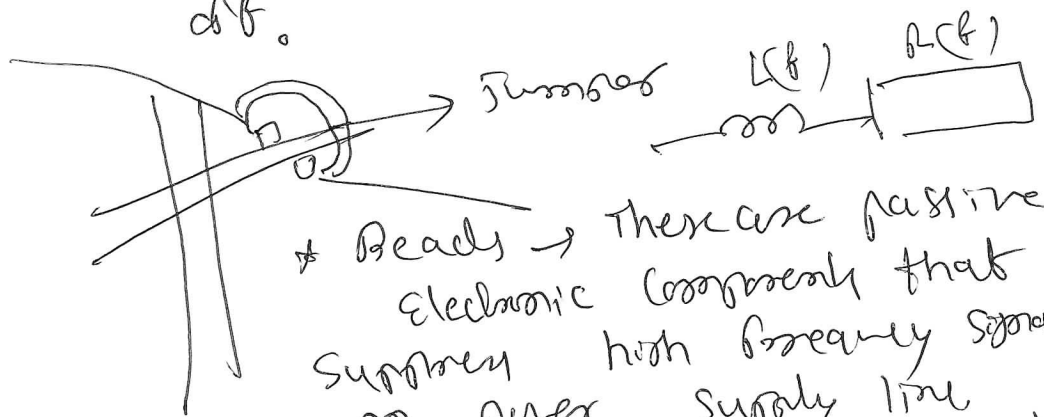 Jumper
L(f)
R(f)
* Beads → These are passive
Electronic Components that
suppress high frequency
supply line